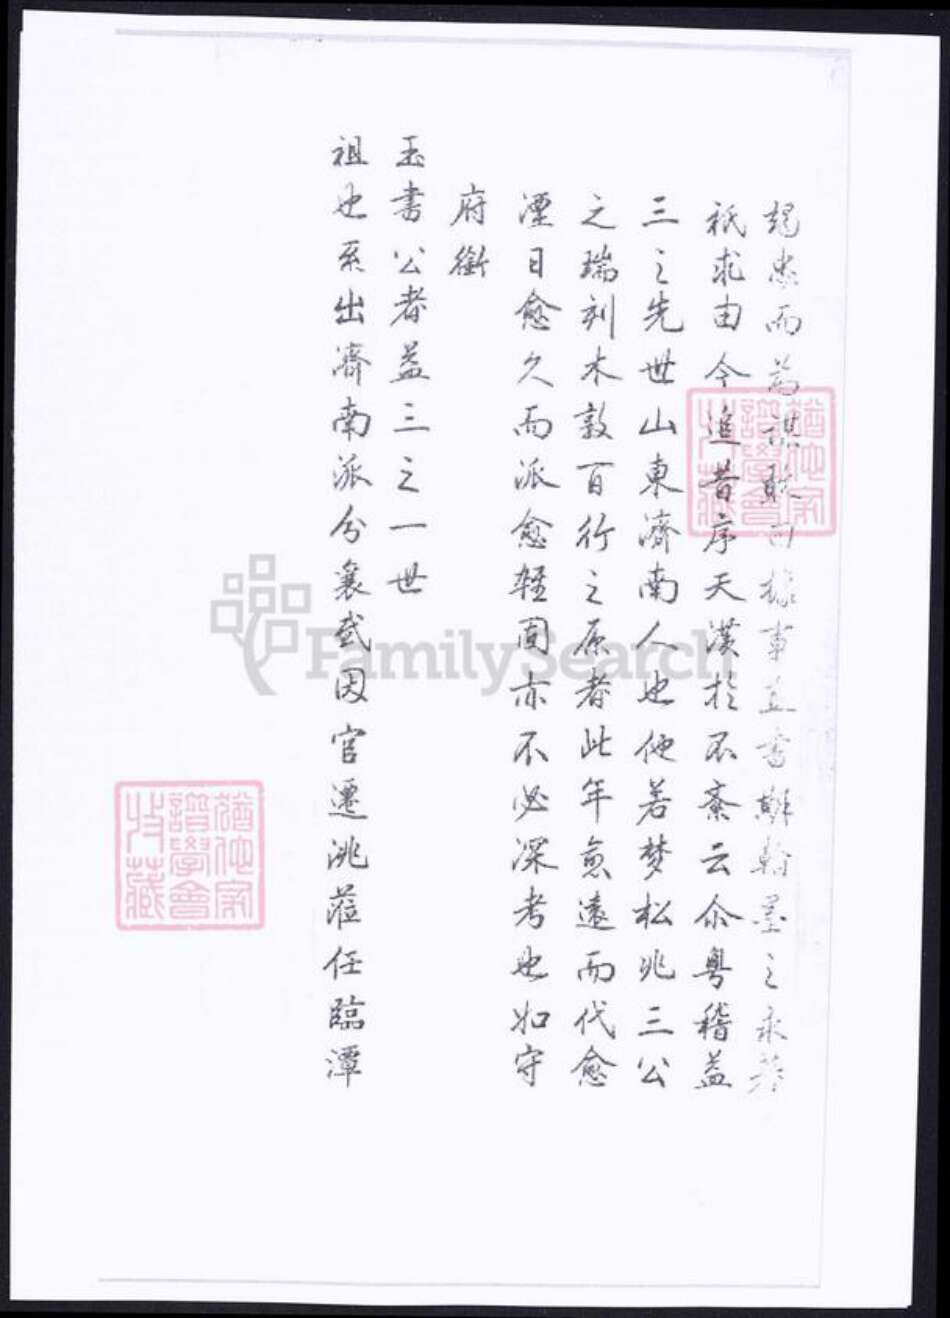 而為敢曰據事直書聊翰墨之永
祇求由今追昔序天漢於不紊云尒粤稽益
三之先世山東濟南人也他若梦松兆三公
之瑞刻木敦百行之原者此年愈遠而代愈
湮日愈久而派愈輕間亦不必深考也如守
府銜
玉書公者益三之一世
祖也系出濟南派分襄武因官遷洮蒞任臨潭
猶他家譜學會收藏
猶他家譜學會收藏
FamilySearch